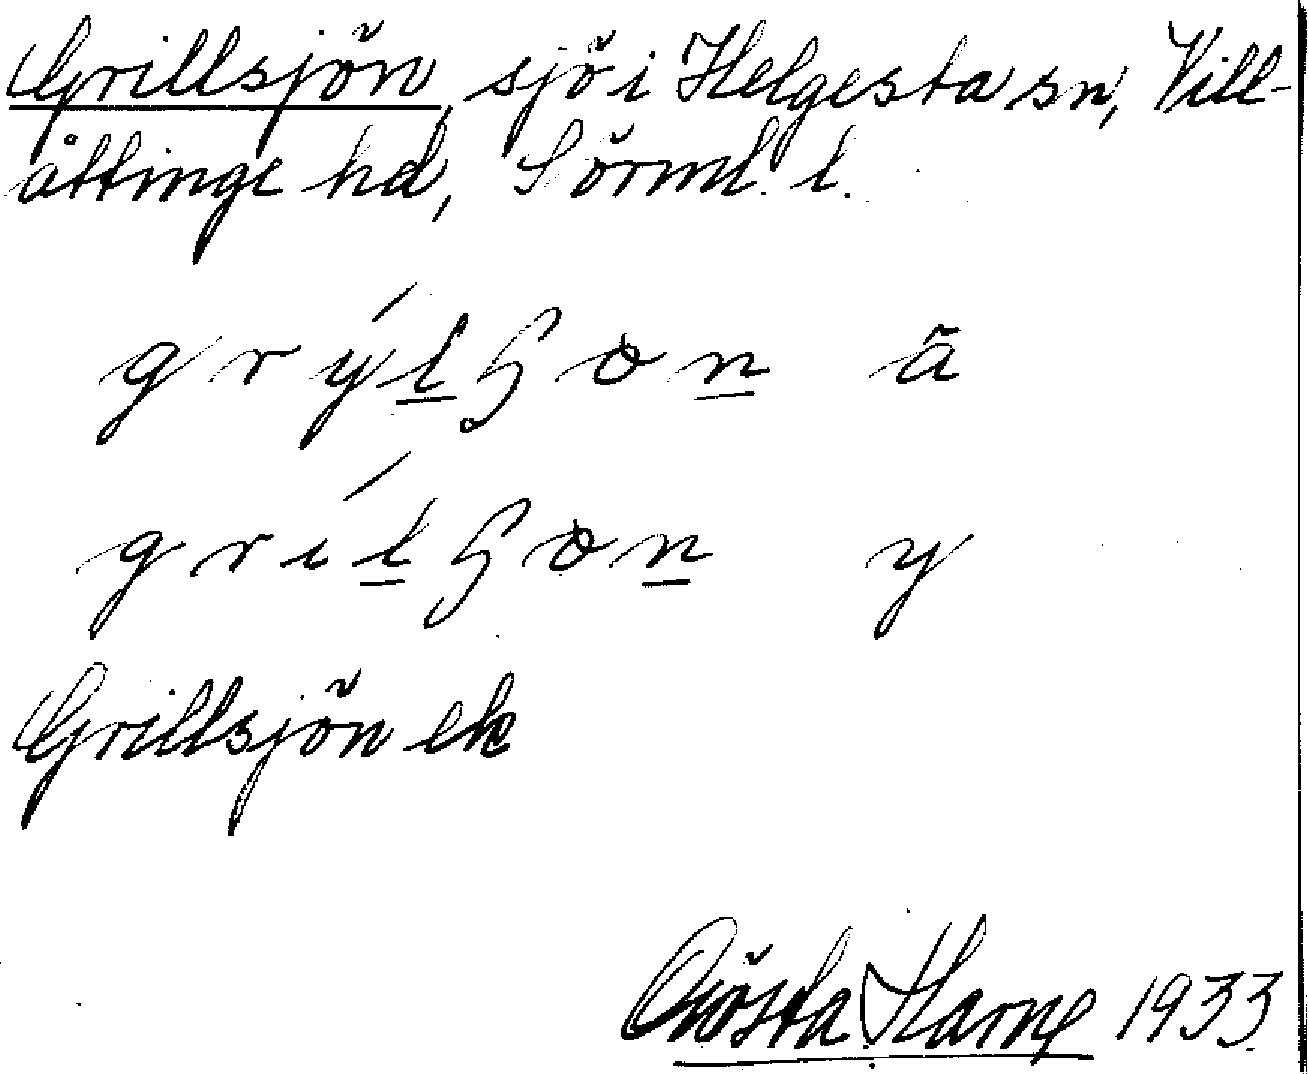 Grillsjön, sjö i Helgesta sn, Vill-
åttinge hd, Sörml. l.
ä
y
Grillsjön ek
Gösta Harne 1933